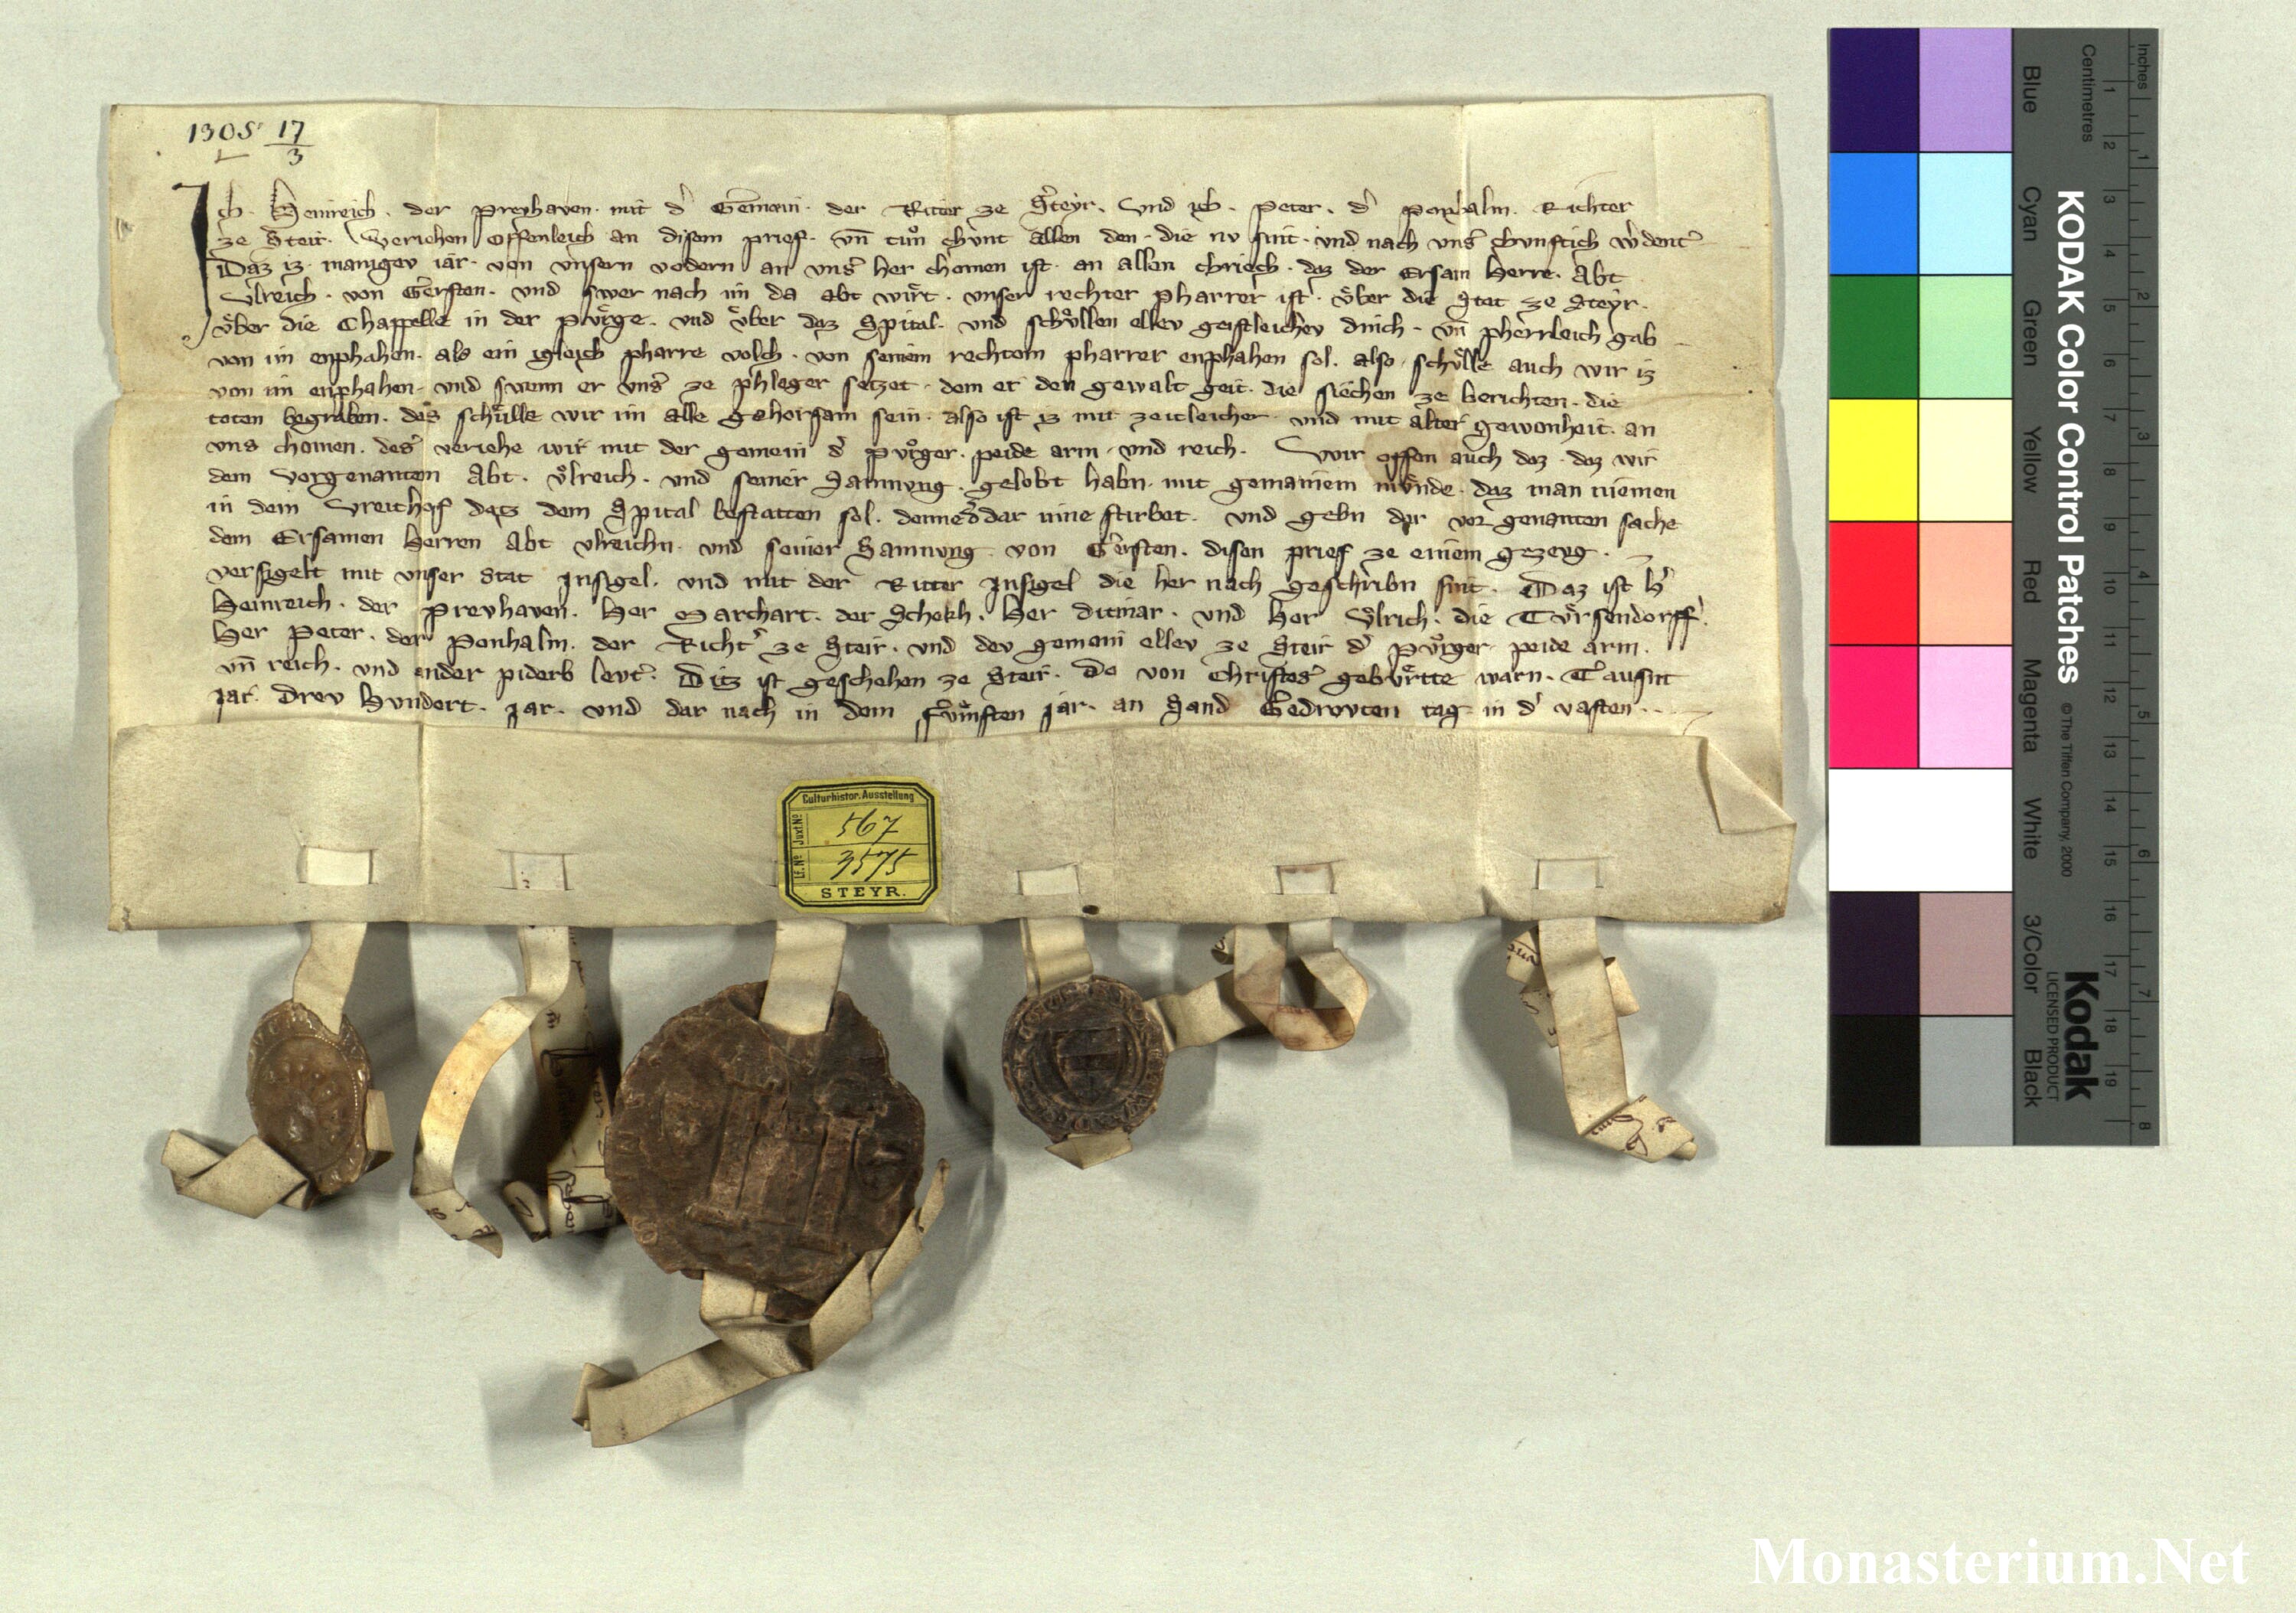 1305 17/3
Ich. Heinreich. der Preyhaven. mit d' Gemain. der Ritter ze Steyr. Und ich. Peter. d' Ponhalm. Richter
ze Steir. Veriehen offenleich an disem prief. vn̄ tuͦn chunt allen den. die nv sint. und nach uns' chunftich w'dent
Daz iz manigev iar. von unsern vodern an uns her chomen ist. an allen chriech. daz der Ersam Herre. Abt
Ulreich. von Gersten. und swer nach im da abt wirt. unser rechter Pharrer ist. uͤber die Stat ze Steyr.
uͤber die Chappelle in der Puͤrge. und uͤber daz Spital. und schuͤllen ellev geistleichev dinch. vn̄ pherrleich gab
von im enphahen. als ein igleich pharre volch. von seinem rechtem pharrer enphahen sol. also schuͤlle auch wir iz
von im enphahen. und swenn er uns' ze phleger setzet. dem er den gewalt geit. die siechen ze berichten. die
toten begraben. des schuͤlle wir im alle gehorsam sein. also ist iz mit zeitleicher und mit alter gewonheit. an
uns chomen. des veriehe wir mit der gemein d' Puͦrger. peide arm. und reich. Wir offen auch daz. daz wir
dem vorgenanten Abt. uͦlreich. und seiner Samnung. gelobt habn. mit gemainem muͤnde. daz man niemen
in dem Vreithof datz dem Spital bestatten sol. denne d' dar inne stirbet. und gebn der vor genanten sache
dem Ersamen Herren Abt Ulreichn. und seiner Samnung von Gersten. disen prief ze einem gezeug.
versigelt mit unser Stat Insigel. und mit der Ritter Insigel die her nach geschribn sint. Daz ist h'
Heinreich. der Preyhaven. Her Marchart. der Schekh. Her Ditmar. und Her Uͦlrich. die Tuͤrsendorff'.
Her Peter. der Ponhalm. der Richt' ze Steir. und dev gemein ellev ze Steir d' Puͦrger peide arm.
vn̄ reich. und ander piderb levt'. Ditz ist geschehen ze Steir. Do von Christes gebuͤrtte warn. Tausint
Jar. Drev Hundert. Jar. und dar nach in dem fuͤmften Jar. an Sand Gedrouten tag in d' vasten.
Culturhistor. Ausstellung
Juxt Nº 567
Lf. Nº 3575
STEYR.
KODAK Color Control Patches
© The Tiffen Company, 2000
Kodak
LICENSED PRODUCT
Blue Cyan Green Yellow Red Magenta White 3/Color Black
Inches
1 2 3 4 5 6 7 8
Centimetres
1 2 3 4 5 6 7 8 9 10 11 12 13 14 15 16 17 18 19
Monasterium.Net